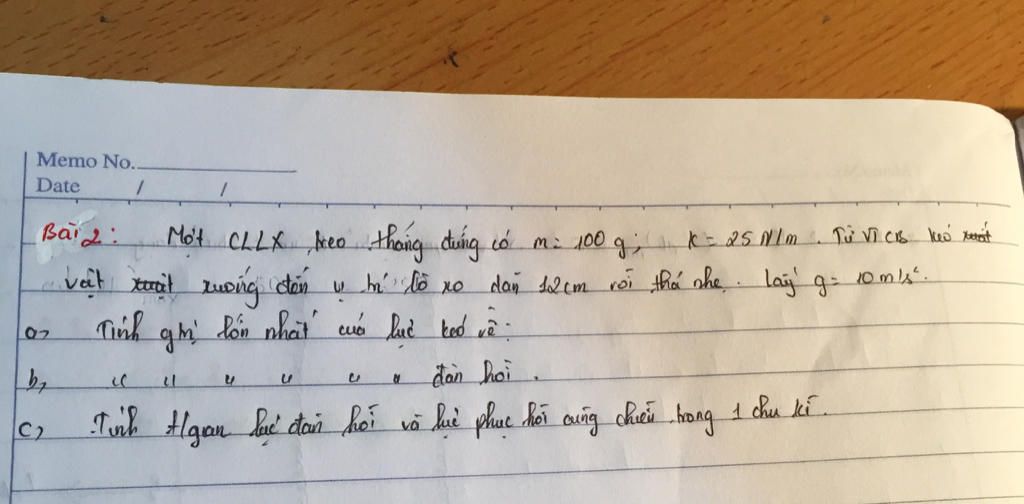 Memo No.
Date / /
Bài 2: Một CLLX treo thẳng đứng có m = 100 g; K = 25 N/m. Từ VTCB kéo
vật xuống đến vị trí lò xo dãn 12cm rồi thả nhẹ. Lấy g = 10 m/s².
a, Tính gtrị lớn nhất của lực kéo về:
b, " " " " " " đàn hồi.
c, Tính t/gan lực đàn hồi và lực phục hồi cùng chiều trong 1 chu kì.